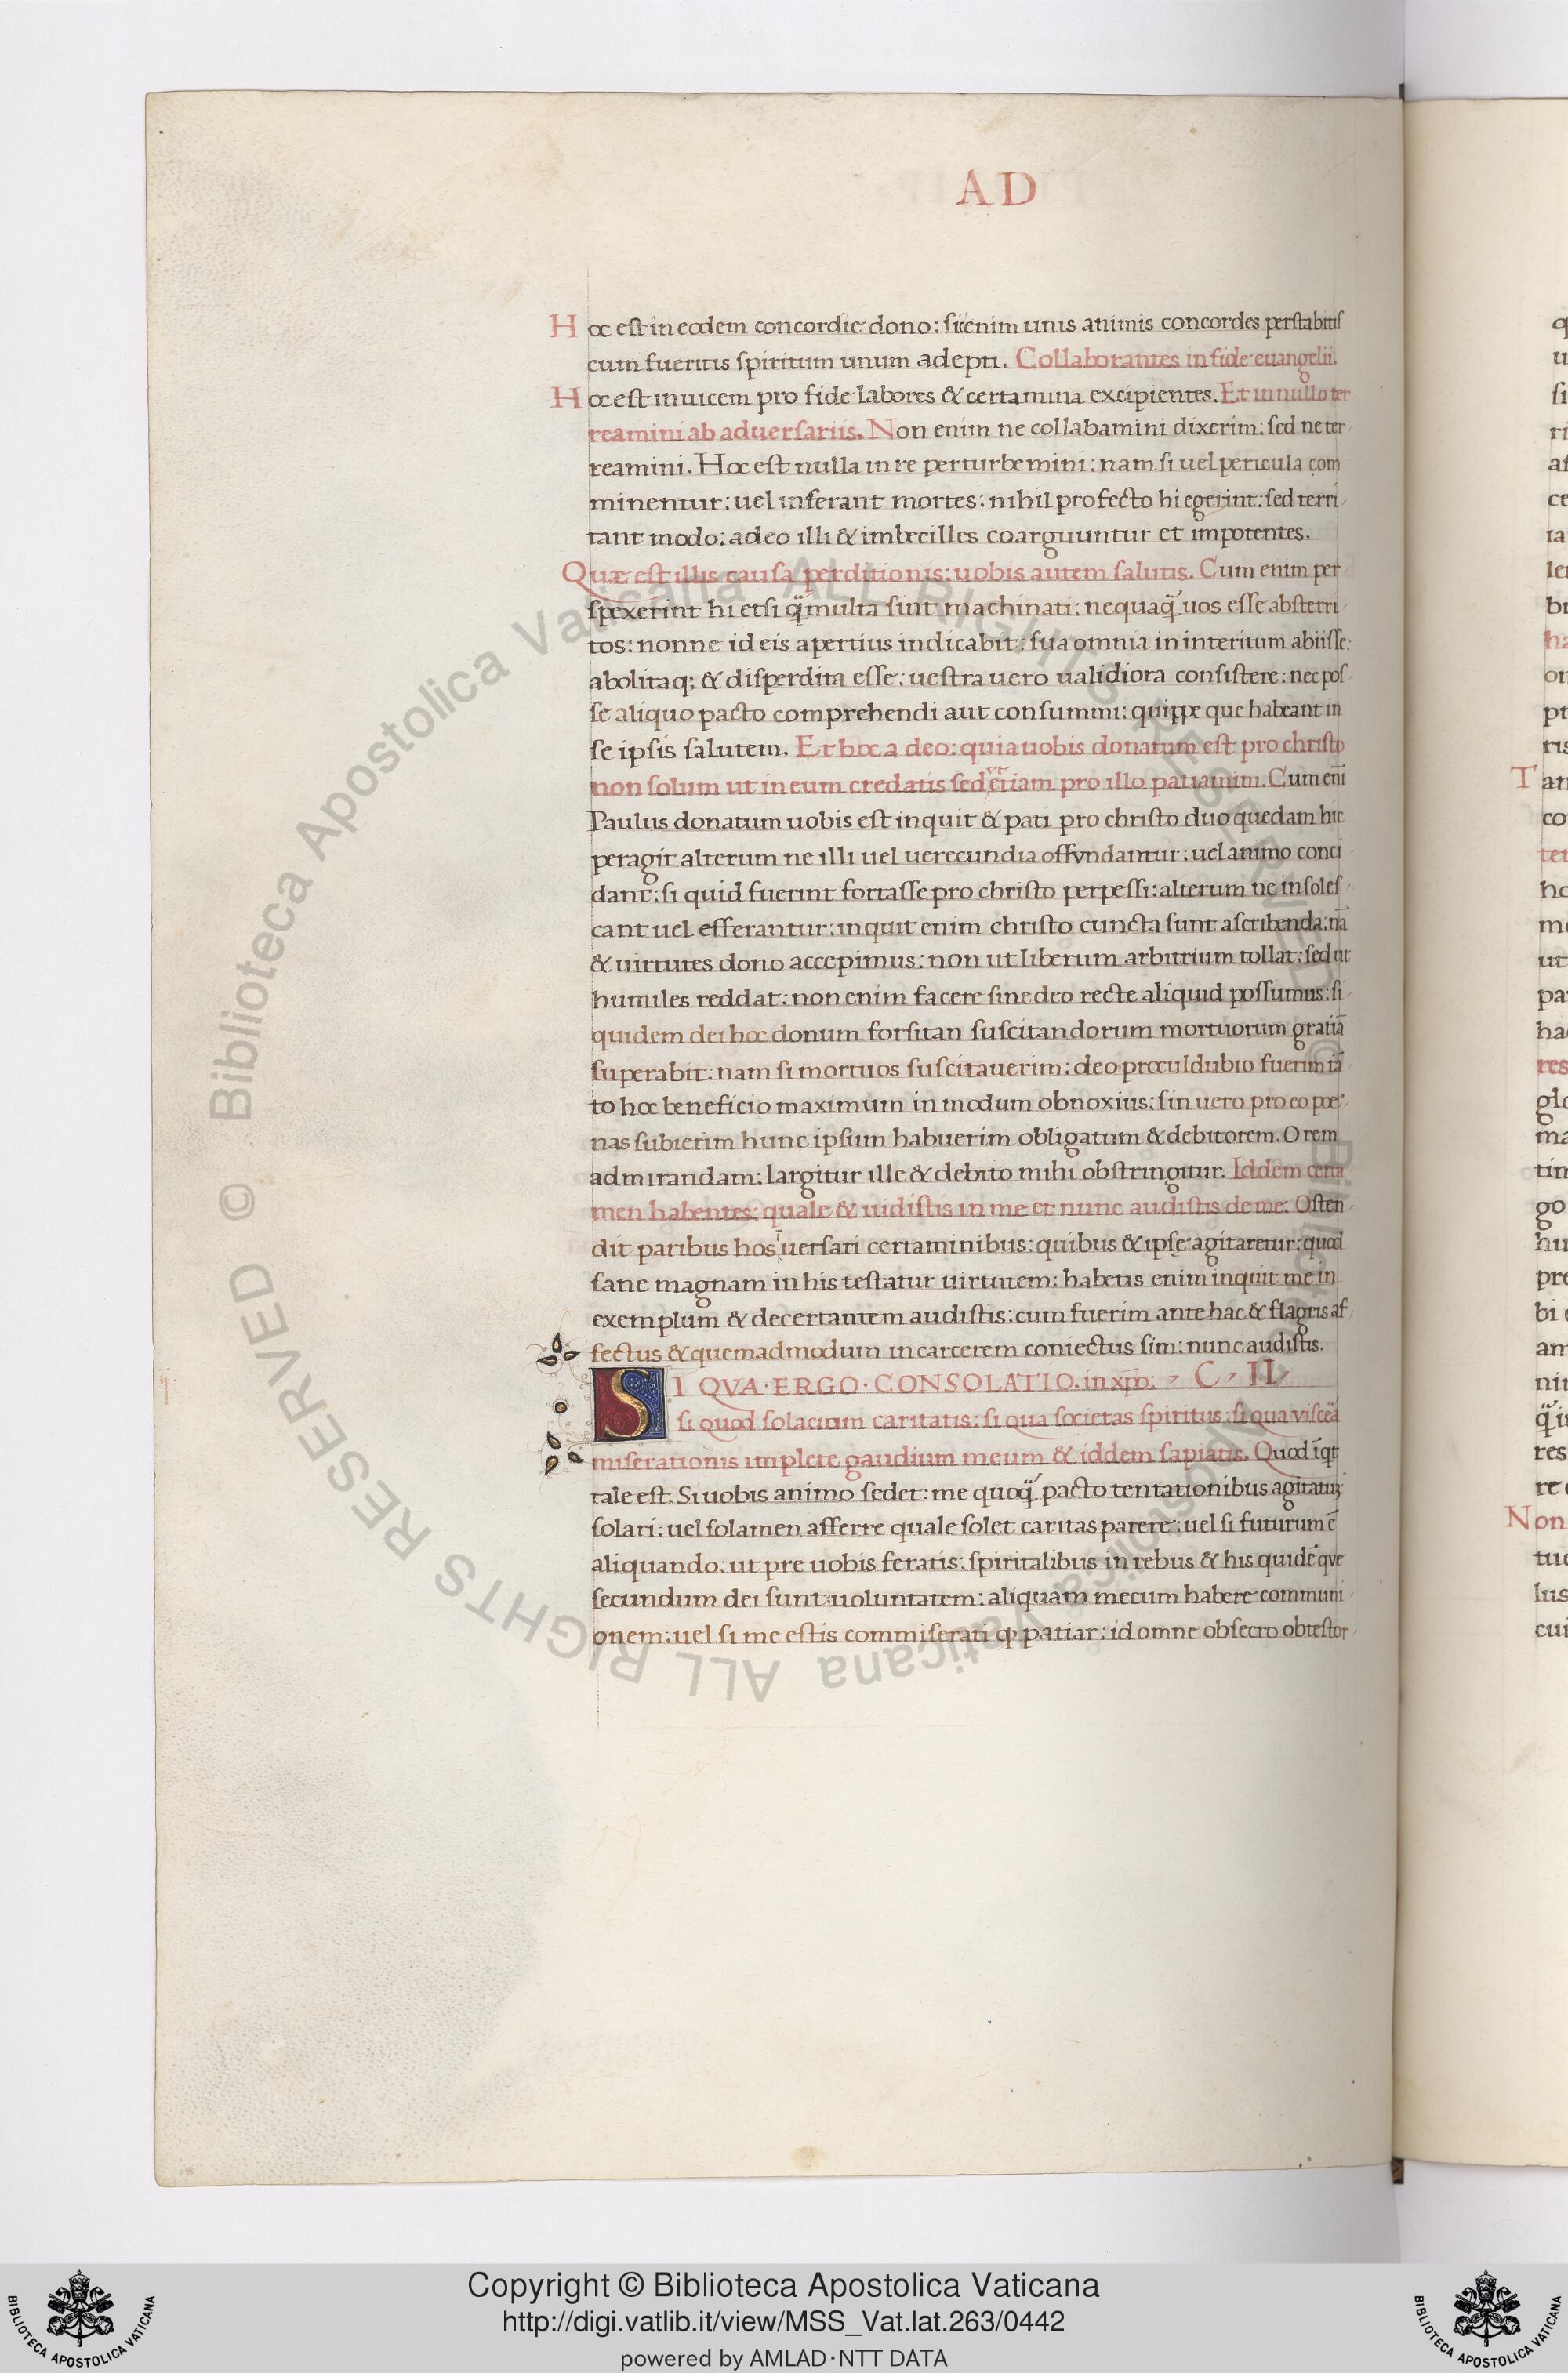 AD
Hoc est in eodem concordie dono: sic enim unis animis concordes perstabitis
cum fueritis spiritum unum adepti. Collaborantes in fide euangelii.
Hoc est inuicem pro fide labores & certamina excipientes. Et in nullo ter
reamini ab aduersariis. Non enim ne collabamini dixerim: sed ne ter
reamini. Hoc est nulla in re perturbemini: nam si uel pericula com
minentur: uel inferant mortes: nihil profecto hi egerint: sed terri
tant modo: adeo illi & imbecilles coarguuntur et impotentes.
Quæ est illis causa perditionis: uobis autem salutis. Cum enim per
spexerint hi etsi q̃multa sint machinati: nequaq̃ uos esse absterri
tos: nonne id eis apertius indicabit: sua omnia in interitum abiisse:
abolitaq; & disperdita esse: uestra uero ualidiora consistere: nec pos
se aliquo pacto comprehendi aut consummi: quippe que habeant in
se ipsis salutem. Et hoc a deo: quia uobis donatum est pro christo
non solum ut in eum credatis sed ut etiam pro illo patiamini. Cum eni̅
Paulus donatum uobis est inquit & pati pro christo duo quedam hic
peragit alterum ne illi uel uerecundia offvndantur: uel animo conci
dant: si quid fuerint fortasse pro christo perpessi: alterum ne insoles
cant uel efferantur: inquit enim christo cuncta sunt ascribenda: na̅
& uirtutes dono accepimus: non ut liberum arbitrium tollat: sed ut
humiles reddat: non enim facere sine deo recte aliquid possumus: si
quidem dei hoc donum forsitan suscitandorum mortuorum gratia̅
superabit: nam si mortuos suscitauerim: deo proculdubio fuerim ta̅
to hoc beneficio maximum in modum obnoxius: sin uero pro eo poe
nas subierim hunc ipsum habuerim obligatum & debitorem. O rem
admirandam: largitur ille & debito mihi obstringitur. Iddem certa
men habentes: quale & uidistis in me et nunc audistis de me. Osten
dit paribus hos uersari certaminibus: quibus & ipse agitaretur: quod
sane magnam in his testatur uirtutem: habetis enim inquit me in
exemplum & decertantem audistis: cum fuerim ante hac & flagris af
fectus & quemadmodum in carcerem coniectus sim: nunc audistis.
SI QVA·ERGO·CONSOLATIO. in xp̅o: C, II,
si quod solacium caritatis: si qua societas spiritus: si qua viscẽa
miserationis implete gaudium meum & iddem sapiatis. Quod i̅qt
tale est. Si uobis animo sedet: me quoq̃ pacto tentationibus agitatuꝫ
solari: uel solamen afferre quale solet caritas parere: uel si futurum e̅
aliquando: ut pre uobis feratis: spiritalibus in rebus & his quide̅ qve
secundum dei sunt uoluntatem: aliquam mecum habere communi
onem: uel si me estis commiserati ꝙ patiar: id omne obsecro obtestor
Copyright © Biblioteca Apostolica Vaticana
http://digi.vatlib.it/view/MSS_Vat.lat.263/0442
powered by AMLAD·NTT DATA
BIBLIOTECA APOSTOLICA VATICANA
BIBLIOTECA APOSTOLICA VATICANA